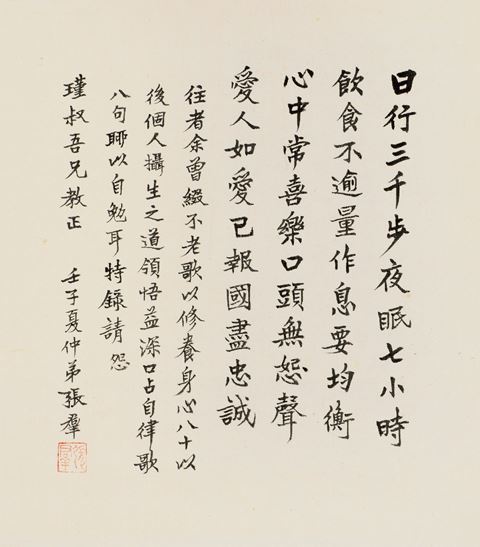 日行三千步夜眠七小時
飲食不逾量作息要均衡
心中常喜樂口頭無恕聲
愛人如愛己報國盡忠誠
往者余曾綴不老歌以修養身心八十以
後個人攝生之道領悟益深口占自律歌
八句聊以自勉耳特錄請 怨
瑾叔吾兄教正 壬子夏仲弟張羣